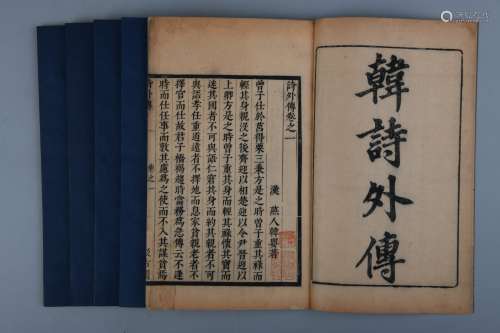 韓詩外傳
詩外傳卷之一
漢 燕人韓嬰著
曾子仕於莒得粟三秉方是之時曾子重其祿而
輕其身親没之後齊迎以相楚迎以令尹晉迎以
上卿方是之時曾子重其身而輕其祿懷其寶而
迷其國者不可與語仁窘其身而約其親者不可
與語孝任重道遠者不擇地而息家貧親老者不
擇官而仕故君子橋褐趨時當務爲急傳云不逢
時而仕任事而敦其慮爲之使而不入其謀貧焉